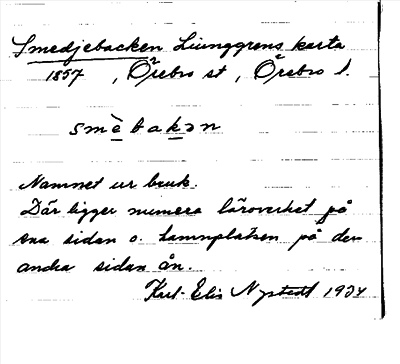 Smedjebacken Ljunggrens karta
1857, Örebro st, Örebro l.
smè bakən
Namnet ur bruk.
Där ligger numera läroverket på
ena sidan o. hamnplatsen på den
andra sidan ån.
Karl-Elis Nystedt 1934